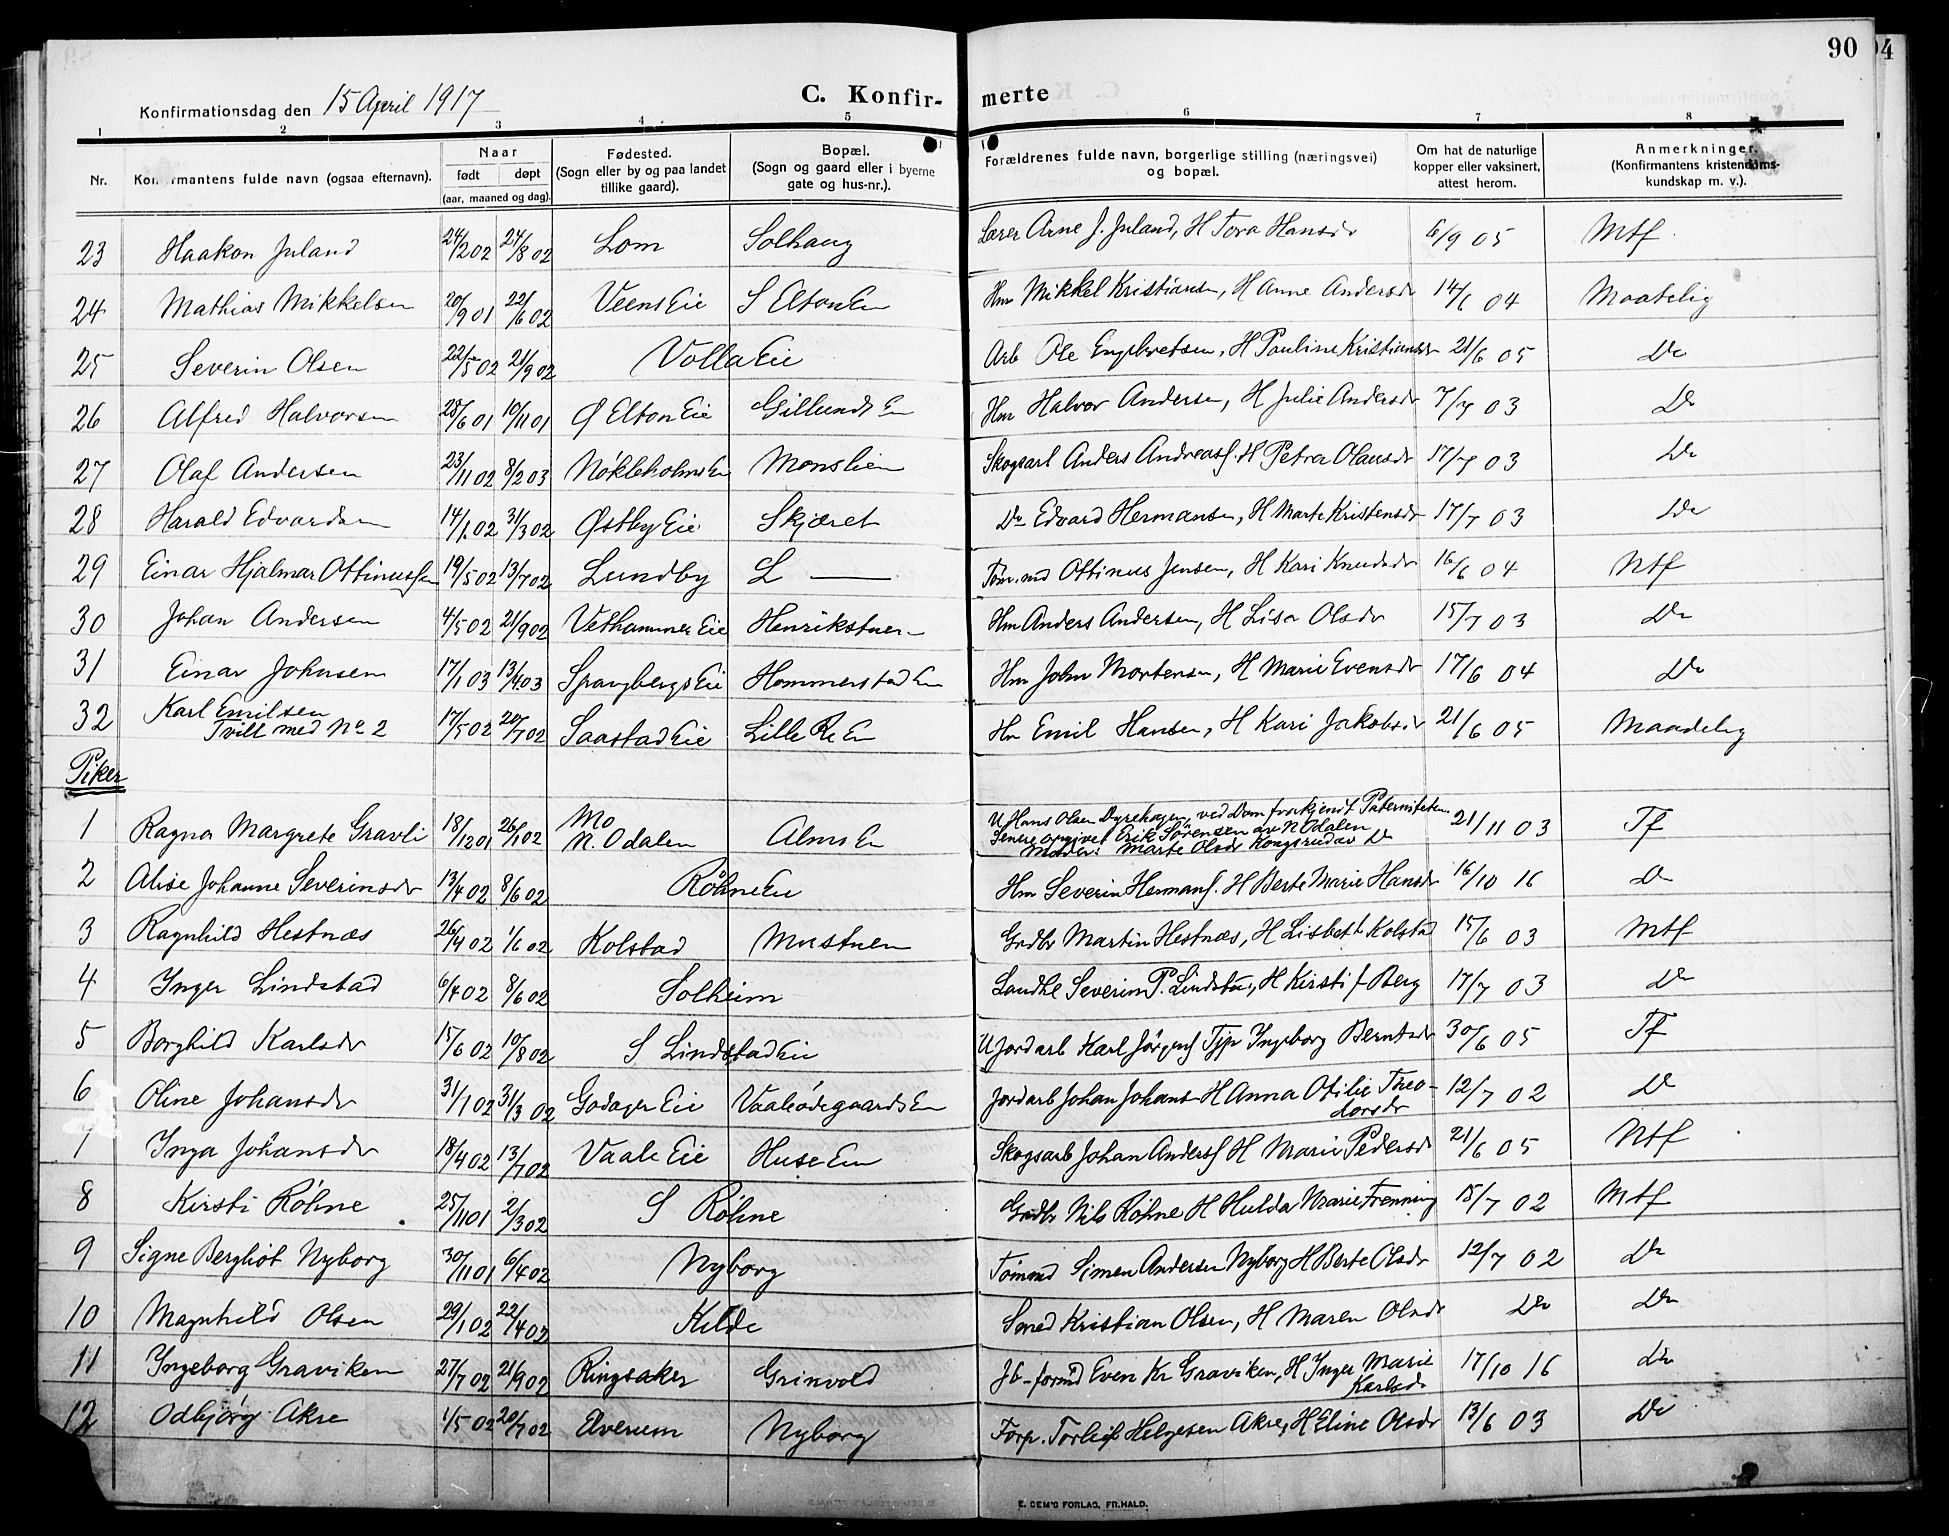 90
04
Konfirmationsdag den 15 April 1917
C. Konfir- merte
1 2 3 4 5 6 7 8
Nr.
Konfirmantens fulde navn (ogsaa efternavn).
Naar
født døpt
(aar, maaned og dag).
Fødested.
(Sogn eller by og paa landet
tillike gaard).
Bopæl.
(Sogn og gaard eller i byerne
gate og hus-nr.).
Forældrenes fulde navn, borgerlige stilling (næringsvei)
og bopæl.
Om hat de naturlige
kopper eller vaksinert,
attest herom.
Anmerkninger.
(Konfirmantens kristendoms-
kundskap m. v.).
23 Haakon Juland 24/2 02 24/8 02 Lom Solhaug Lærer Arne J. Juland, H Tora Hansdr 6/9 05 Mtf
24 Mathias Mikkelsen 20/9 01 22/6 02 Veens Eie S Elton En Hm Mikkel Kristiansen, H Anne Andersdr 14/6 04 Maatelig
25 Severin Olsen 22/5 02 21/9 02 Volla Eie Arb Ole Engebretsen, H Pauline Kristiansdr 21/6 05 Do
26 Alfred Halvorsen 28/6 01 10/11 01 Ø Elton Eie Gillunds En Hm Halvor Andersen, H Julie Andersdr 7/7 03 Do
27 Olaf Andersen 23/11 02 8/2 03 Nökleholms En Monslien Skogsarb Anders Andreass. H Petra Olausdr 17/7 03 Do
28 Harald Edvardsen 14/1 02 31/3 02 Østby Eie Skjæret Do Edvard Hermansen, H Marte Kristensdr 17/7 03 Do
29 Einar Hjalmar Ottinussen 19/5 02 13/7 02 Lundby L — Töm.md Ottinus Jensen, H Kari Knudsdr 16/6 04 Ntf
30 Johan Andersen 4/5 02 21/9 02 Vethammer Eie Henrikstuen Hm Anders Andersen, H Lisa Olsdr 15/7 03 Do
31 Einar Johnsen 17/1 03 13/4 03 Spangbergs Eie Hommerstad En Hm John Mortensen, H Marie Evensdr 17/6 04 Do
32 Karl Emilsen 17/5 02 20/7 02 Saastad Eie Lille Re En Hm Emil Hansen, H Kari Jakobsdr 21/6 05 Maadelig
Tvill med No 2
Piker
1 Ragna Margrete Gravli 18/12 01 26/1 02 Mo
N. Odalen Alms En U Hans Olsen Dyrehagen, ved Dom frakjendt Paterniteten
Senere opgivet Erik Sørensen av N Odalen
Moder: Marte Olsdr Kongsrud av Do 21/11 03 Tf
2 Alise Johanne Severinsdr 13/4 02 8/6 02 Röhne Eie Hm Severin Hermans. H Berte Marie Hansdr 16/10 16 Do
3 Ragnhild Hestnæs 26/4 02 1/6 02 Kolstad Mostuen Gadbr Martin Hestnæs, H Lisbet f. Kolstad 15/6 03 Mtf
4 Inger Lindstad 6/4 02 8/6 02 Solheim Landhl Severin P. Lindstad, H Kirsti f Berg 17/7 03 Do
5 Borghild Karlsdr 15/6 02 10/8 02 S Lindstad Eie U Jordarb Karl Jörgens Tjp Ingeborg Berntsdr 30/6 05 Tf
6 Oline Johansdr 31/1 02 31/3 02 Godager Eie Vaaleödegaards En Jordarb Johan Johans H Anna Otilie Theo-
dorsdr 12/7 02 Do
7 Inga Johansdr 18/4 02 13/7 02 Vaale Eie Huse En Skogsarb Johan Anders H Marie Pedersdr 21/6 05 Ntf
8 Kirsti Röhne 25/11 01 2/3 02 S Röhne Gadbr Nils Röhne H Hulda Marie Frenning 15/7 02 Mtf
9 Signe Bergliot Nyborg 30/11 01 6/4 02 Nyborg Tömmd Simen Andersen Nyborg H Berte Olsdr 12/7 02 Do
10 Magnhild Olsen 29/1 02 22/4 02 Kilde Smed Kristian Olsen, H Maren Olsdr Do Do
11 Ingeborg Graviken 27/7 02 21/9 02 Ringsaker Grinvold Jb-formd Even Kr Graviken, H Inger Marie
Karlsdr 17/10 16 Do
12 Odbjörg Akre 1/5 02 20/7 02 Elverum Nyborg Forp. Torleif Helgesen Akre, H Eline Olsdr 13/6 03 Do
E. SEM'S FORLAG, FR.HALD.